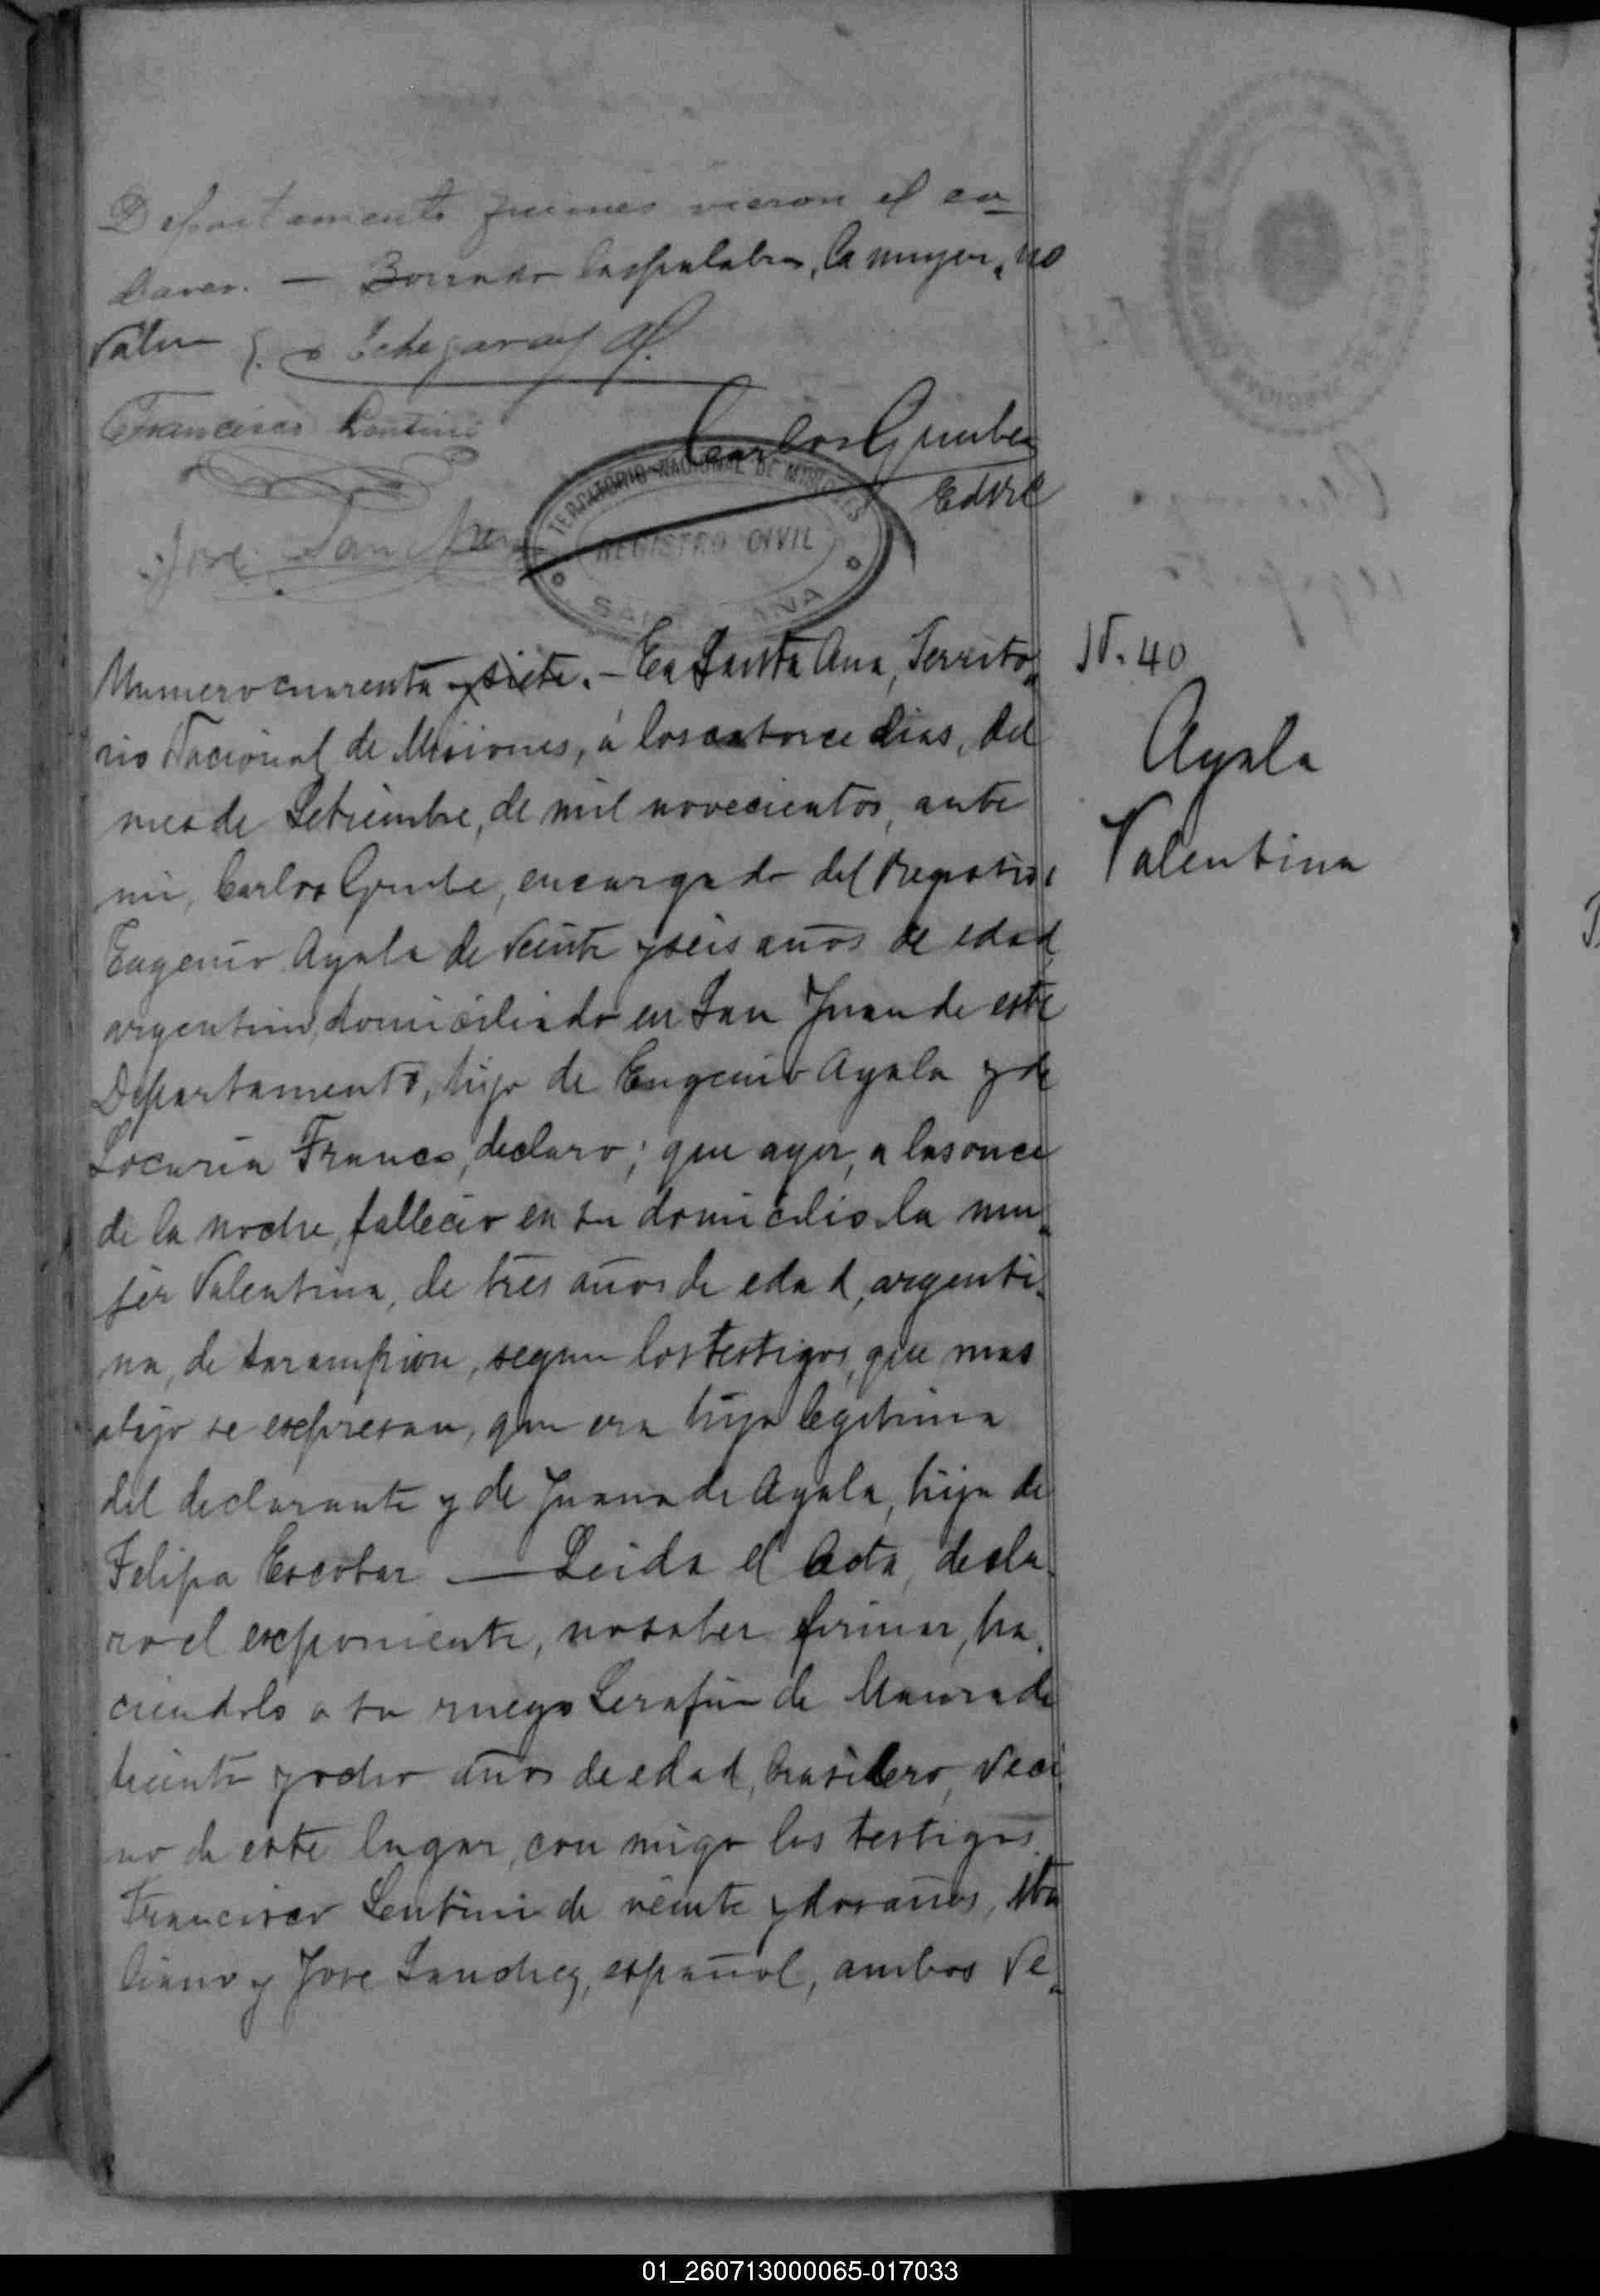 Departamento quienes vieron el ca-
daver. — Borrado las palabras, la muger, no
Valen
Echegaray
Francisco Lentini
Carlos Grumbe
Ed del RC
Jose Sanchez
TERRITORIO NACIONAL DE MISIONES
REGISTRO CIVIL
SANTA ANA
Numero cuarenta y siete. — En Santa Ana, Territo-
rio Nacional de Misiones, á los catorce dias, del
mes de Setiembre, de mil novecientos, ante
mi, Carlos Grumbe, encargado del Registro
Eugenio Ayala de veinte y seis años de edad
argentino, domiciliado en San Juan de este
Departamento, hijo de Eugenio Ayala y de
Locaria Franco, declaro; que ayer, a las once
de la noche, fallecio en su domicilio la mu-
jer Valentina, de tres años de edad, argenti-
na, de sarampion, segun los testigos, que mas
abajo se expresan, que era hija legitima
del declarante y de Juana de Ayala, hija de
Felipa Escobar — Leida el Acta, decla-
ro el exponiente, no saber firmar, ha-
ciendolo a su ruego Serafin de Moura de
treinta y ocho años de edad, brasilero, veci-
no de este lugar, con migo los testigos
Francisco Lentini de veinte y dos años, Ita
liano y Jose Sanchez, español, ambos ve-
N. 40
Ayala
Valentina
01_260713000065-017033